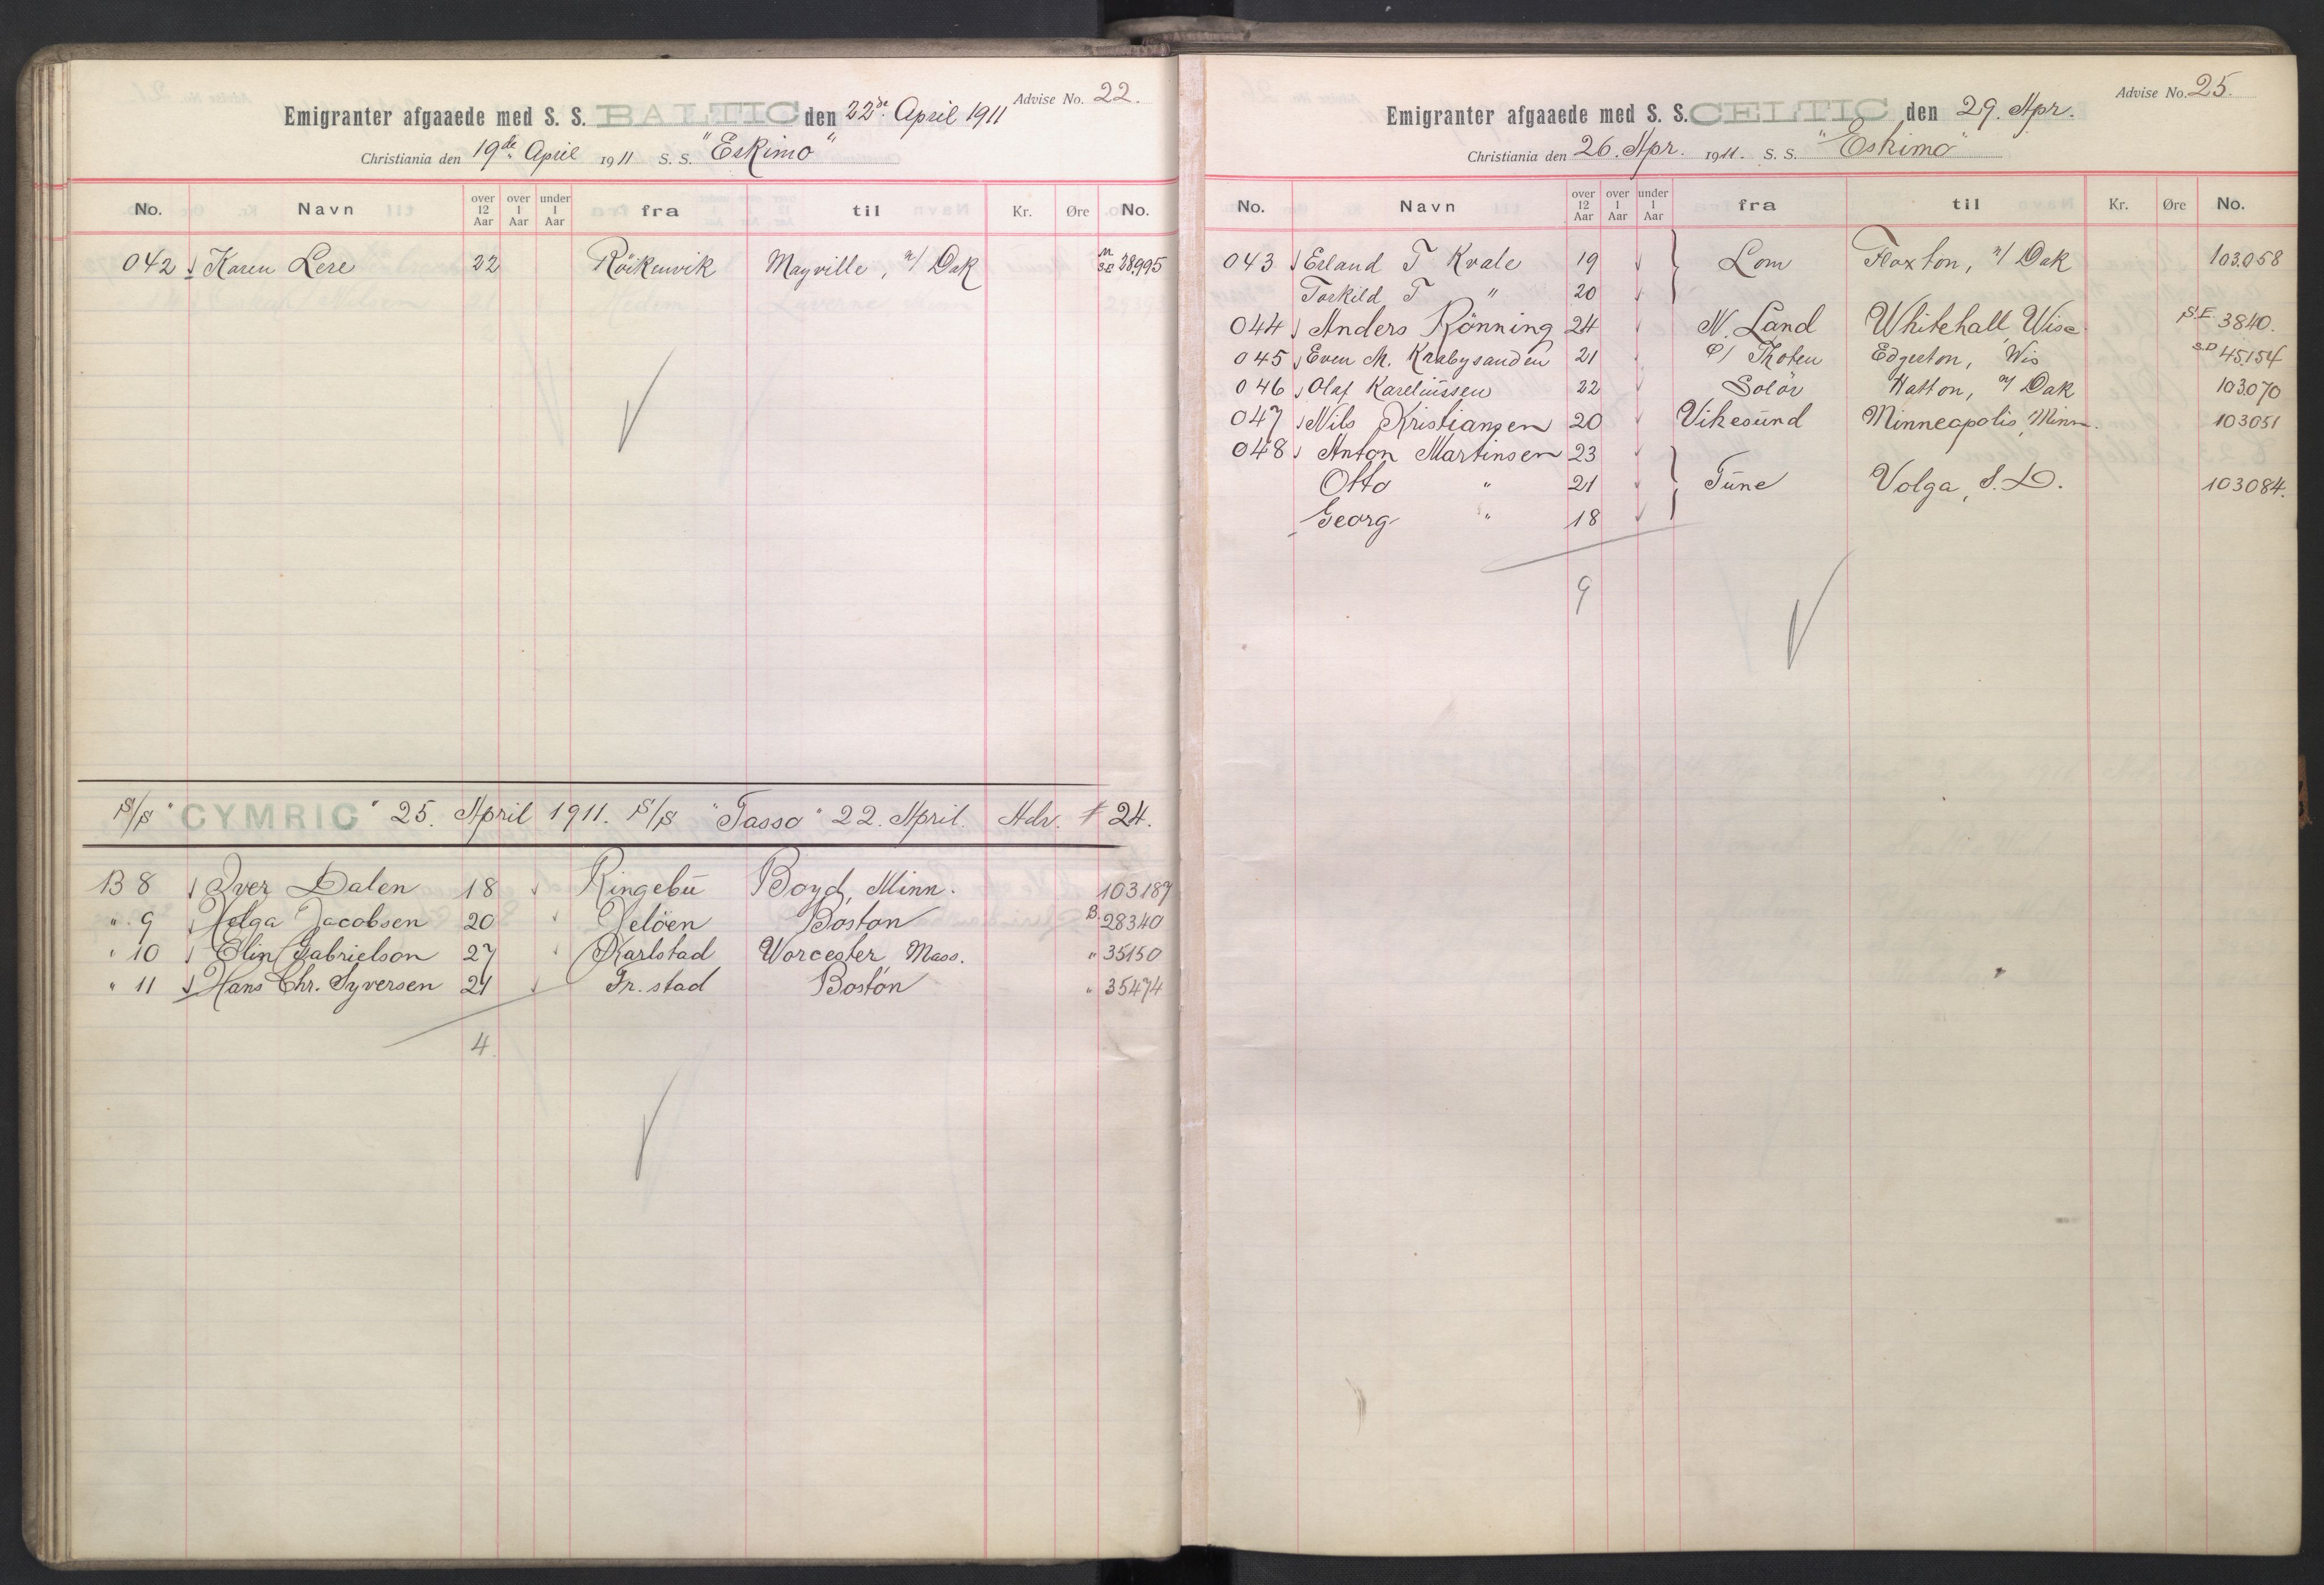 Advise No. 22.
Emigranter afgaaede med S. S. BALTIC den 22de April 1911
Christiania den 19de April 1911 S. S. "Eskimo"
No. Navn over 12 Aar over 1 Aar under 1 Aar fra til Kr. Øre No.
042 Karen Lere 22 Röikenvik Mayville, n/ Dak 28995
S/S "CYMRIC" 25. April 1911. S/S "Tasso" 22. April. Adv. # 24.
B 8 Iver Dalen 18 Ringebu Boyd, Minn. 103187
" 9 Helga Jacobsen 20 Jelöen Boston B. 28340
" 10 Elin Gabrielson 27 Karlstad Worcester, Mass. " 35150
" 11 Hans Chr. Syversen 21 Fr.stad Boston " 35474
4
Advise No. 25.
Emigranter afgaaede med S. S. CELTIC den 29. Apr.
Christiania den 26. Apr. 1911. S. S. "Eskimo"
No. Navn over 12 Aar over 1 Aar under 1 Aar fra til Kr. Øre No.
043 Erland T Kvale 19 Lom Floxton, n/ Dak 103058
Torkild T " 20
044 Anders Rönning 24 N. Land Whitehall, Wisc. S.E. 3840.
045 Even M. Krabysanden 21 Ø/ Thoten Edgerton, Wis S.D 45154
046 Olaf Kareliussen 22 Solör Hatton, n/ Dak 103070
047 Nils Kristiansen 20 Vikesund Minneapolis, Minn. 103051
048 Anton Martinsen 23
Otto " 21 Tune Volga, S. D. 103084.
Georg " 18
9